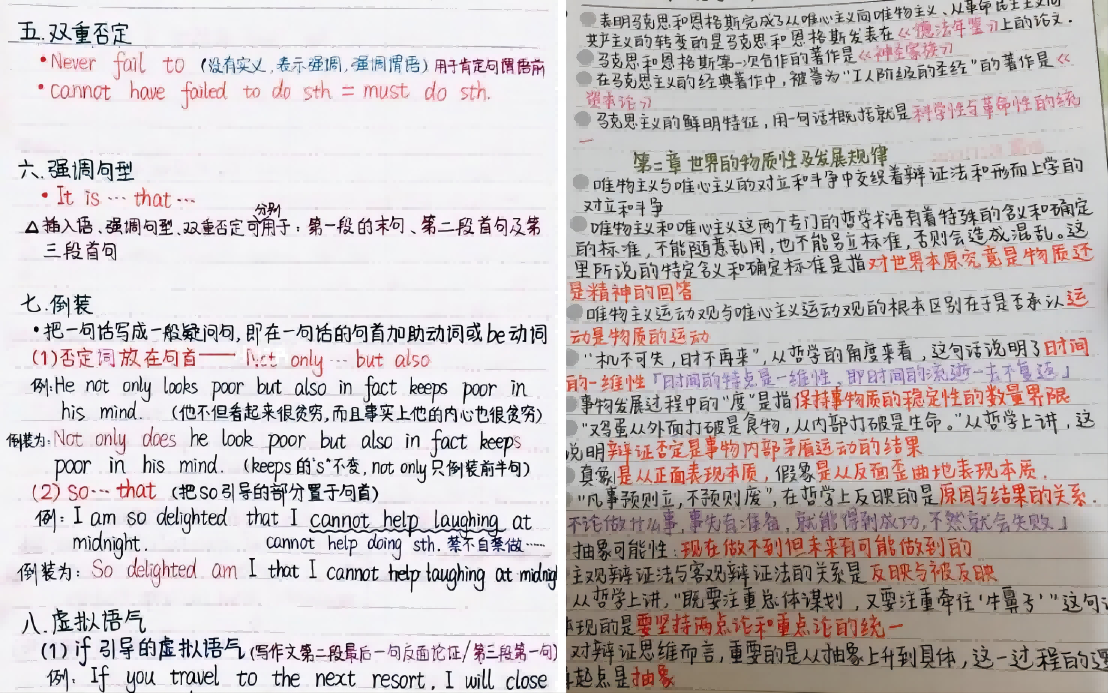 五.双重否定
•Never fail to (没有实义,表示强调,强调谓语)用于肯定句谓语前
•cannot have failed to do sth = must do sth.
六.强调句型
•It is … that …
分别
△插入语、强调句型、双重否定可用于:第一段的末句、第二段首句及第
三段首句
七.倒装
•把一句话写成一般疑问句,即在一句话的句首加助动词或be动词
(1)否定词放在句首—— Not only … but also
例:He not only looks poor but also in fact keeps poor in
his mind. (他不但看起来很贫穷,而且事实上他的内心也很贫穷)
倒装为:Not only does he look poor but also in fact keeps
poor in his mind. (keeps的's'不变,not only只倒装前半句)
(2) so … that (把so引导的部分置于句首)
例:I am so delighted that I cannot help laughing at
midnight. cannot help doing sth. 禁不自禁做……
倒装为:So delighted am I that I cannot help laughing at midnig
八.虚拟语气
(1) if引导的虚拟语气(写作文第二段最后一句反面论证/第三段第一句)
例:If you travel to the next resort, I will close
表明马克思和恩格斯完成了从唯心主义向唯物主义、从革命民主主义向
共产主义的转变的是马克思和恩格斯发表在《德法年鉴》上的论文.
马克思和恩格斯第一次合作的著作是《神圣家族》
在马克思主义的经典著作中,被誉为"工人阶级的圣经"的著作是《
资本论》
马克思主义的鲜明特征,用一句话概括就是科学性与革命性的统
一
第二章 世界的物质性及发展规律
唯物主义与唯心主义的对立和斗争中交织着辩证法和形而上学的
对立和斗争
唯物主义和唯心主义这两个专门的哲学术语有着特殊的含义和确定
的标准,不能随意乱用,也不能另立标准,否则会造成混乱。这
里所说的特定含义和确定标准是指对世界本原究竟是物质还
是精神的回答
唯物主义运动观与唯心主义运动观的根本区别在于是否承认运
动是物质的运动
"机不可失,时不再来",从哲学的角度来看,这句话说明了时间
的一维性「时间的特点是一维性,即时间的流逝一去不复返」
事物发展过程中的"度"是指保持事物质的稳定性的数量界限
"鸡蛋从外面打破是食物,从内部打破是生命。"从哲学上讲,这
说明辩证否定是事物内部矛盾运动的结果
真象是从正面表现本质,假象是从反面歪曲地表现本质.
"凡事预则立,不预则废",在哲学上反映的是原因与结果的关系.
不论做什么事,事先有准备,就能得到成功,不然就会失败」
抽象可能性:现在做不到但未来有可能做到的
主观辩证法与客观辩证法的关系是反映与被反映
从哲学上讲,"既要注重总体谋划,又要注重牵住'牛鼻子'"这句话
体现的是要坚持两点论和重点论的统一
对辩证思维而言,重要的是从抽象上升到具体,这一过程的逻
辑起点是抽象